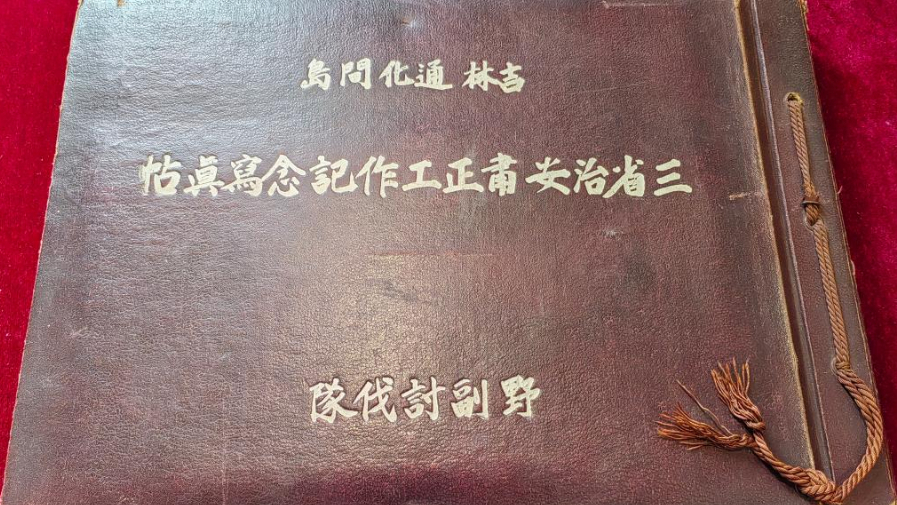 吉林 通化間島
三省治安肅正工作記念寫眞帖
野副討伐隊